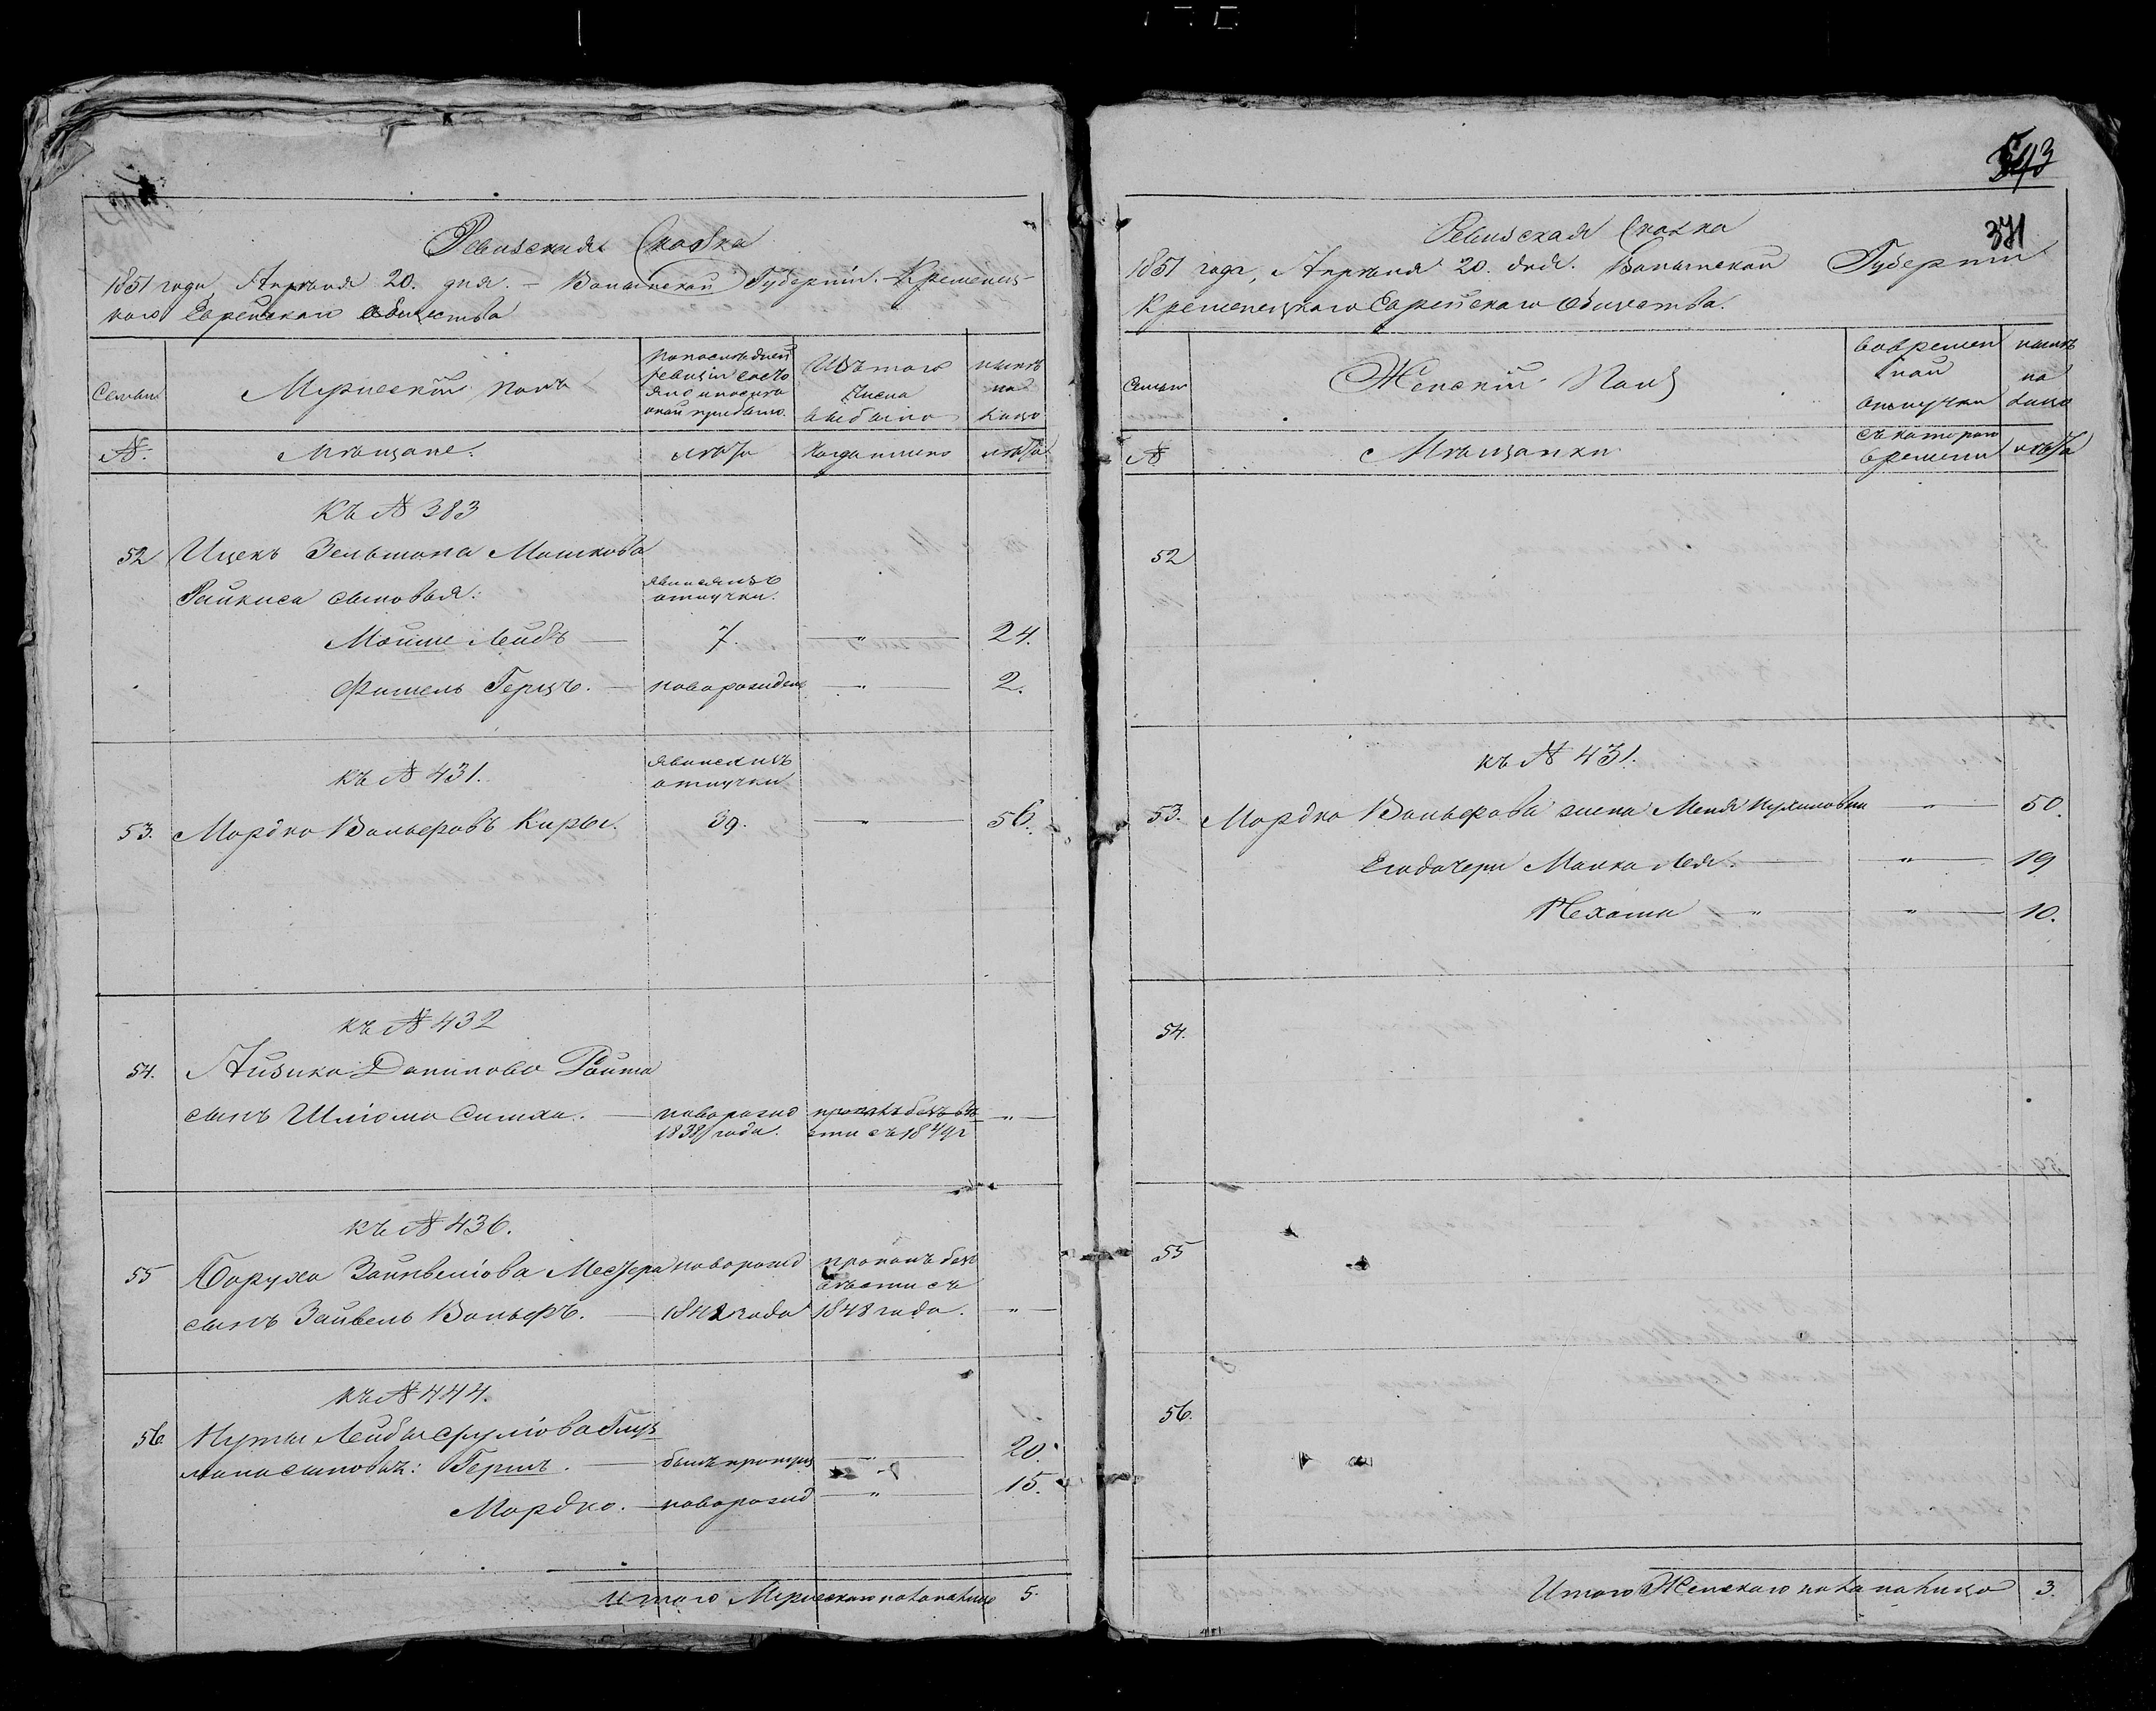 Ревизская Сказка
1851 года, Апреля 20. дня. – Волынской Губернiи. Кременец-
кого Еврейскаго общества
Семьи
Мужескiй полъ
по последней ревизiи состояло и после оной прибыло
Изъ того числа выбыло
ныне на лицо
№.
Мѣщане.
лѣта
Когда именно
лѣта
къ № 383
52 Ицекъ Зельмана Мошкова
Райкиса сыновья: явился изъ отлучки.
Мойше Лейбъ — 7. — " — 24.
Фишель Герцъ. — новорожден — " — 2.
къ № 431. явился изъ отлучки
53. Мордко Вольфовъ Кирыс. 39. — " — 56.
къ № 432
54. Айзика Данилова Ройта
сынъ Шлiома Симха. — новорожд 1838 года. пропалъ безъ вѣсти съ 1849 г — " —
къ № 436.
55 Боруха Зайнвелiова Мессера новорожд пропалъ безъ вѣсти съ
сынъ Зайвель Вольфъ. — 1842 года 1848 года. — " —
къ № 444.
56. Нуты Лейбы Срулiова
сыновья: Гершъ. — былъ пропущ — " — 20.
Мордко. — новорожд — " — 15.
Итого Мужескаго пола на лицо 5.
543
371
Ревизская Сказка
1851 года, Апреля 20. дня. Волынской Губернiи
Кременецкаго Еврейскаго Общества.
Семьи
Женскiй Полъ
Во временной отлучке
ныне на лицо
№
Мѣщанки
съ котораго времени
лѣта
52
къ № 431.
53. Мордка Вольфова жена Меня Нухимовна — " — 50.
Его дочери Малка Лея. — " — 19
Нехама — " — " — 10.
54.
55
56.
Итого Женскаго пола на лицо 3.